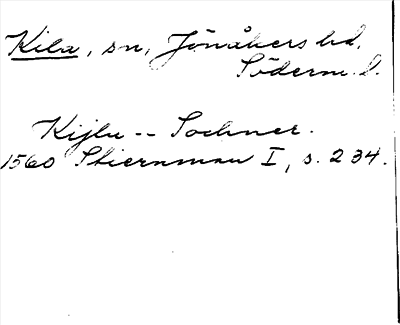 Kila, sn, Jönåkers hd,
Söderm. l.
Kijlu -- Sochner.
1560 Stiernman I, s. 234.